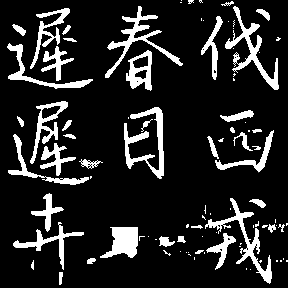 伐西戎
春日
遲遲卉